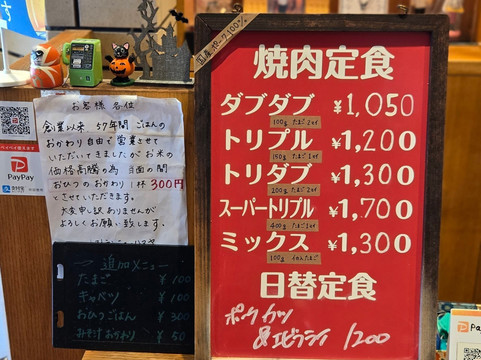 お客様各位
創業以来、57年間ごはんの
おかわり自由で営業させて
いただいてきましたがお米の
価格高騰の為 当面の間
おひつのおかわり1杯300円
とさせていただきます。
大変申し訳ありませんが
よろしくお願い致します。
PayPay
追加メニュー
たまご ¥100
キャベツ ¥100
おひつごはん ¥300
みそ汁おかわり ¥50
国産ポーク100%
焼肉定食
ダブダブ ¥1,050
100g たまご2ケ
トリプル ¥1,200
150g たまご1ケ
トリダブ ¥1,300
200g たまご2ケ
スーパートリプル ¥1,700
400g たまご
ミックス ¥1,300
100g
日替定食
ポークカツ
&エビフライ 1200